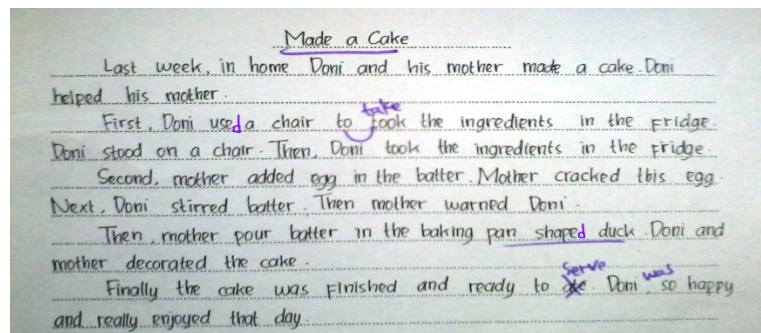 Made a Cake
Last week, in home Doni and his mother made a cake. Doni
helped his mother.
take
First, Doni used a chair to took the ingredients in the fridge.
Doni stood on a chair. Then, Doni took the ingredients in the fridge.
Second, mother added egg in the batter. Mother cracked this egg.
Next, Doni stirred batter. Then mother warned Doni.
Then, mother pour batter in the baking pan shaped duck. Doni and
mother decorated the cake.
serve was
Finally the cake was finished and ready to ate. Doni so happy
and really enjoyed that day.